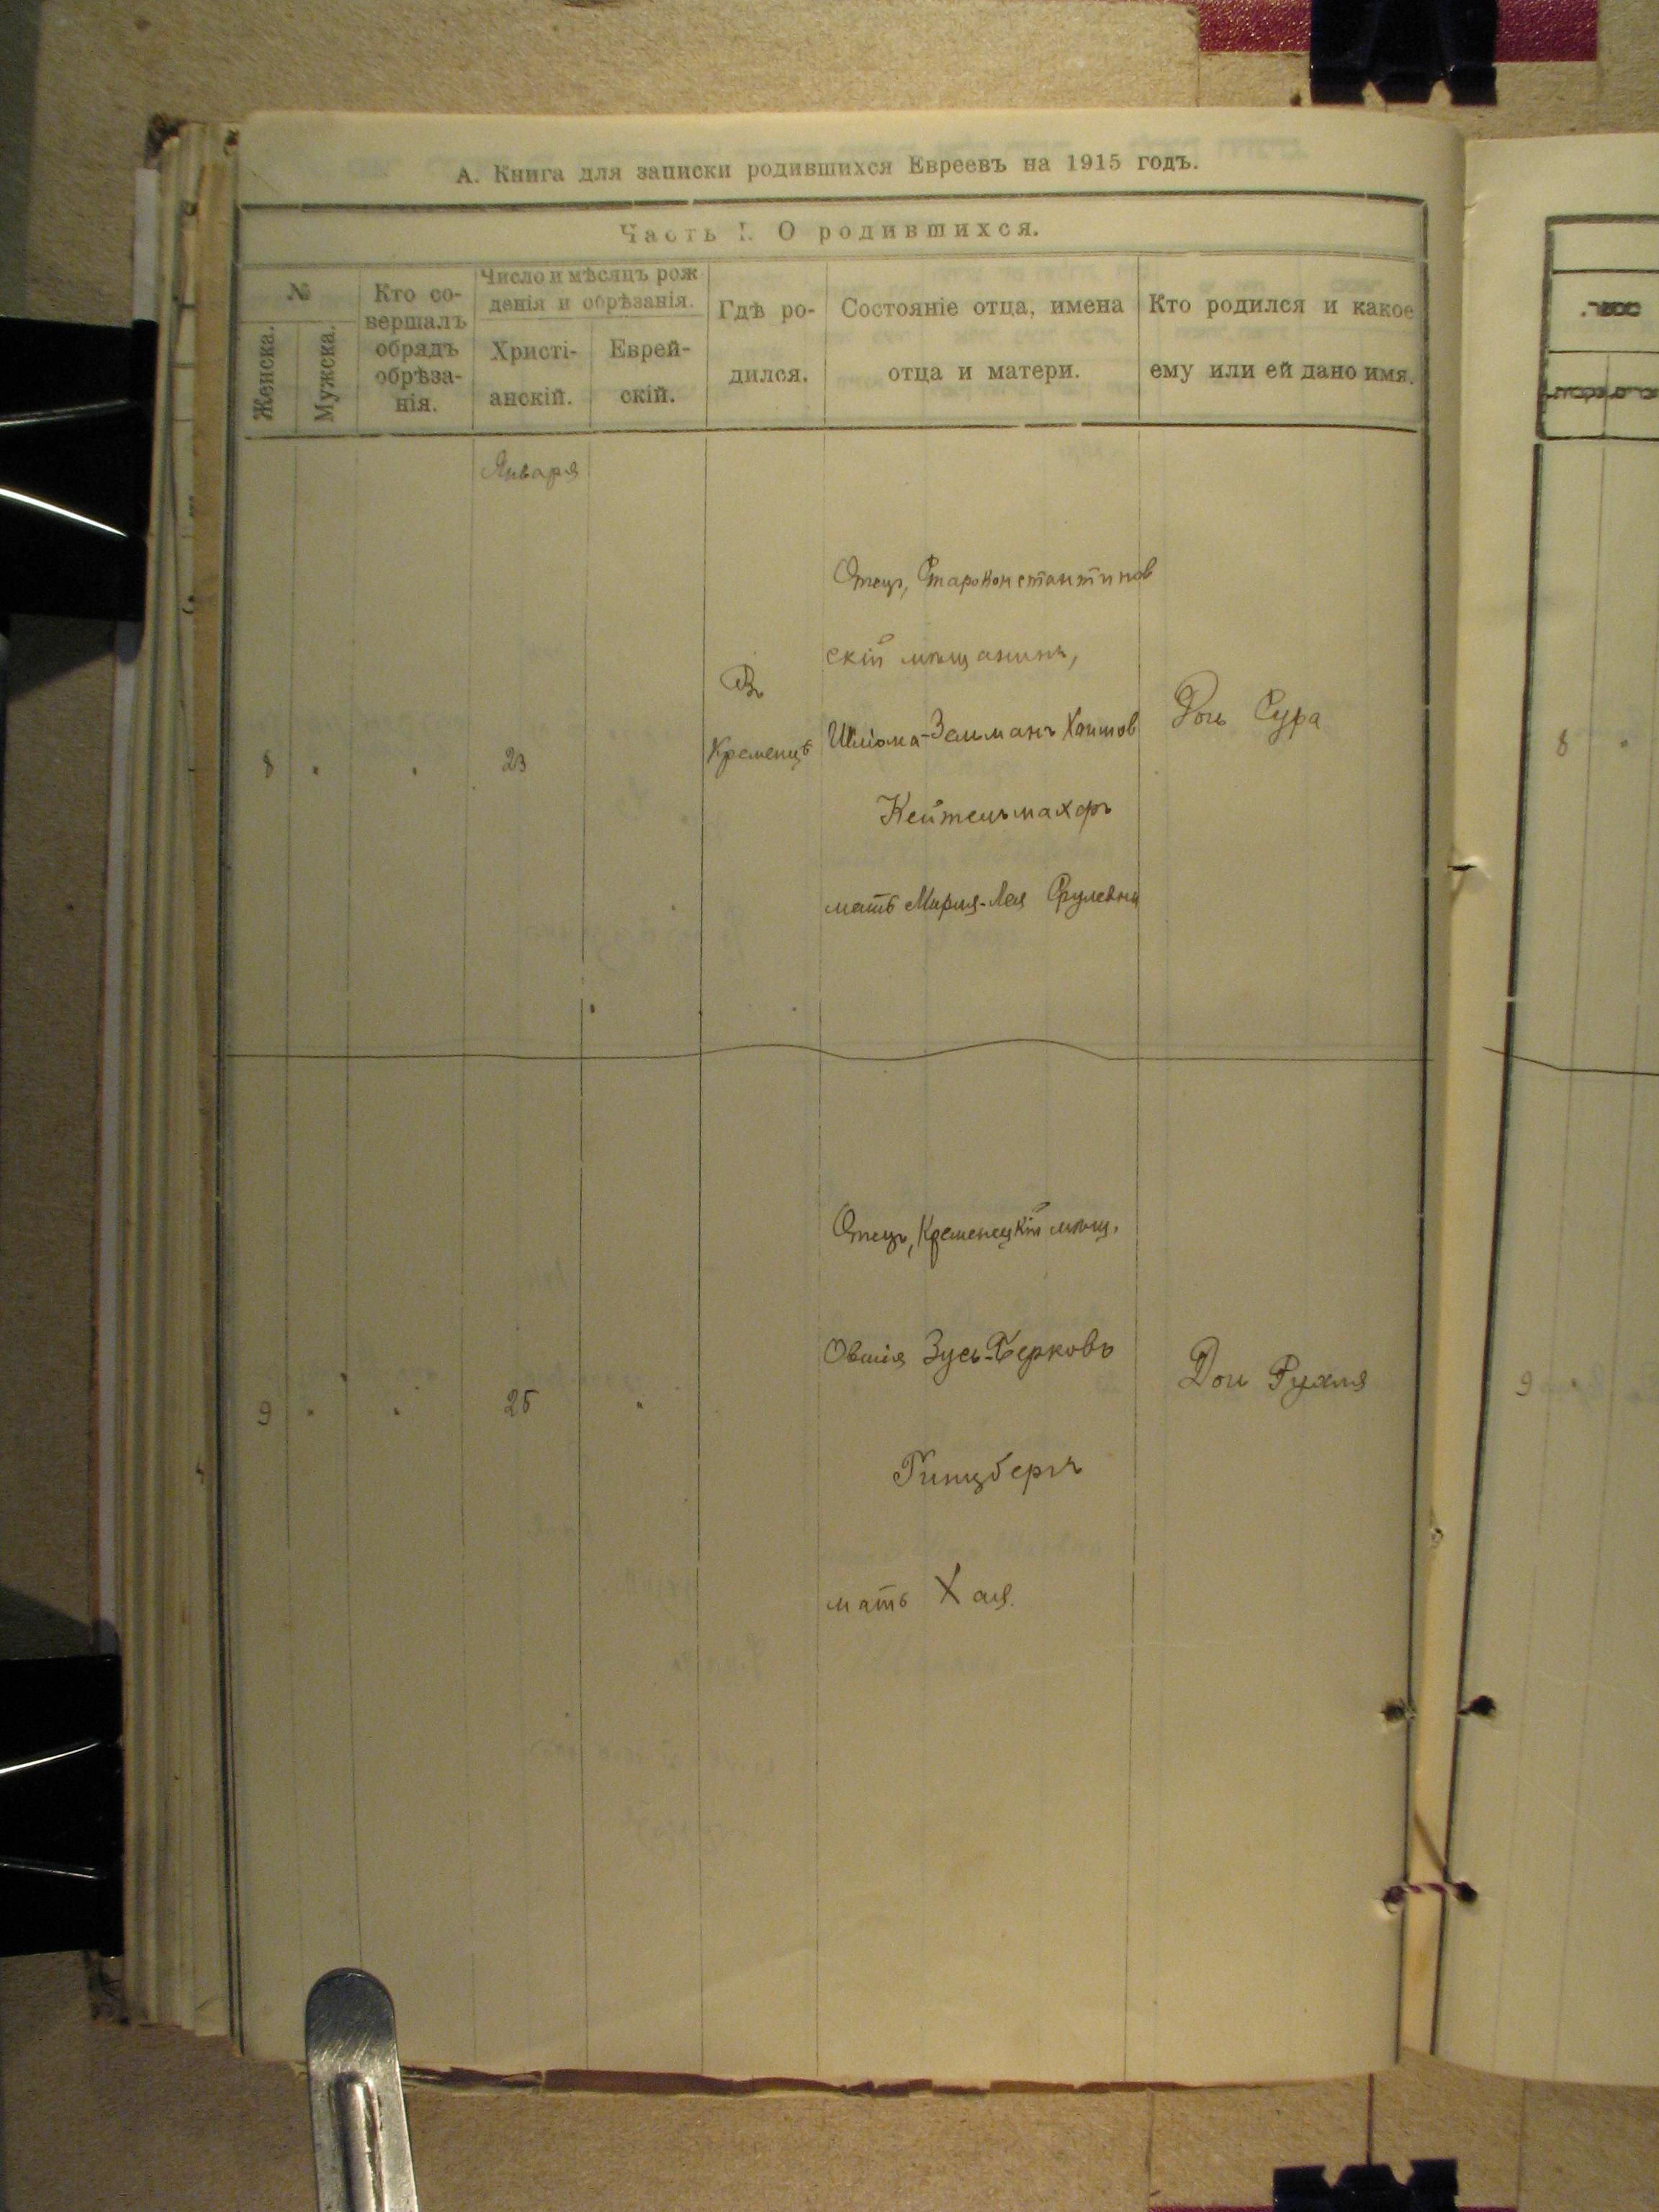 А. Книга для записки родившихся Евреевъ на 1915 годъ.
Часть I. О родившихся.
№
Женска.
Мужска.
Кто со-
вершалъ
обрядъ
обрѣза-
нія.
Число и мѣсяцъ рож
денія и обрѣзанія.
Христі-
анскій.
Еврей-
скій.
Гдѣ ро-
дился.
Состояніе отца, имена
отца и матери.
Кто родился и какое
ему или ей дано имя.
Января
8
23
Въ
Кременцѣ
Отецъ, Староконстантинов
скій мѣщанинъ,
Шліома-Залманъ Хаимов
Кейтельмахеръ
мать Мирля-Лея Срулевна
Дочь Сура
8
9
25
Отецъ, Кременецкій мѣщ.
Овшія Зусь-Берковъ
Гинцбергъ
мать Хая.
Дочь Рухля
9